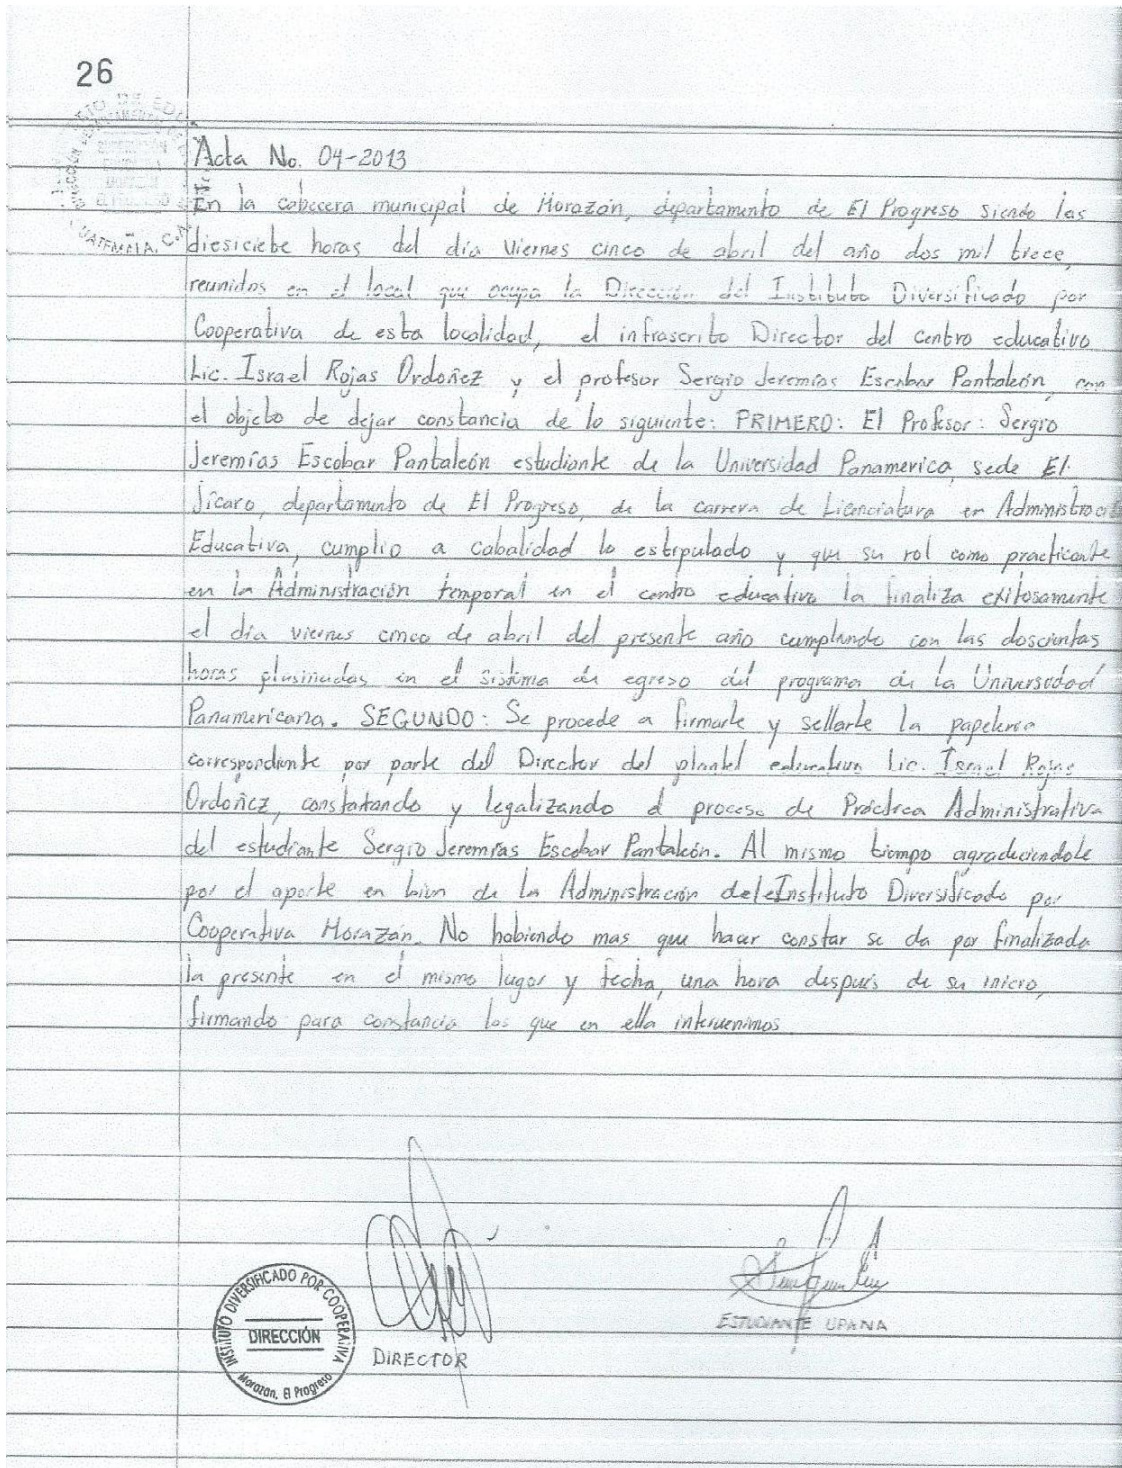 26
Acta No. 04-2013
En la cabecera municipal de Morazán, departamento de El Progreso siendo las
diesiciebe horas del día viernes cinco de abril del año dos mil trece,
reunidos en el local que ocupa la Dirección del Instituto Diversificado por
Cooperativa de esta localidad, el infrascrito Director del centro educativo
Lic. Israel Rojas Ordoñez y el profesor Sergio Jeremías Escobar Pantaleón, con
el objeto de dejar constancia de lo siguiente: PRIMERO: El Profesor: Sergio
Jeremías Escobar Pantaleón estudiante de la Universidad Panamerica, sede El
Jícaro, departamento de El Progreso, de la carrera de Licenciatura en Administració
Educativa, cumplio a cabalidad lo estipulado y que su rol como practicante
en la Administración temporal en el centro educativo la finaliza exitosamente
el día viernes cinco de abril del presente año cumpliendo con las doscientas
horas en el sistema de egreso del programa de la Universidad
Panamericana. SEGUNDO: Se procede a firmarle y sellarle la papeleria
correspondiente por parte del Director del plantel educativo Lic. Israel Rojas
Ordoñez, constatando y legalizando el proceso de Práctica Administrativa
del estudiante Sergio Jeremías Escobar Pantaleón. Al mismo tiempo agradeciendole
por el aporte en bien de la Administración del Instituto Diversificado por
Cooperativa Morazán. No habiendo mas que hacer constar se da por finalizada
la presente en el mismo lugar y fecha, una hora después de su inicio,
firmando para constancia los que en ella intervenimos.
INSTITUTO DIVERSIFICADO POR COOPERATIVA
DIRECCIÓN
Morazan, El Progreso
DIRECTOR
ESTUDIANTE UPANA